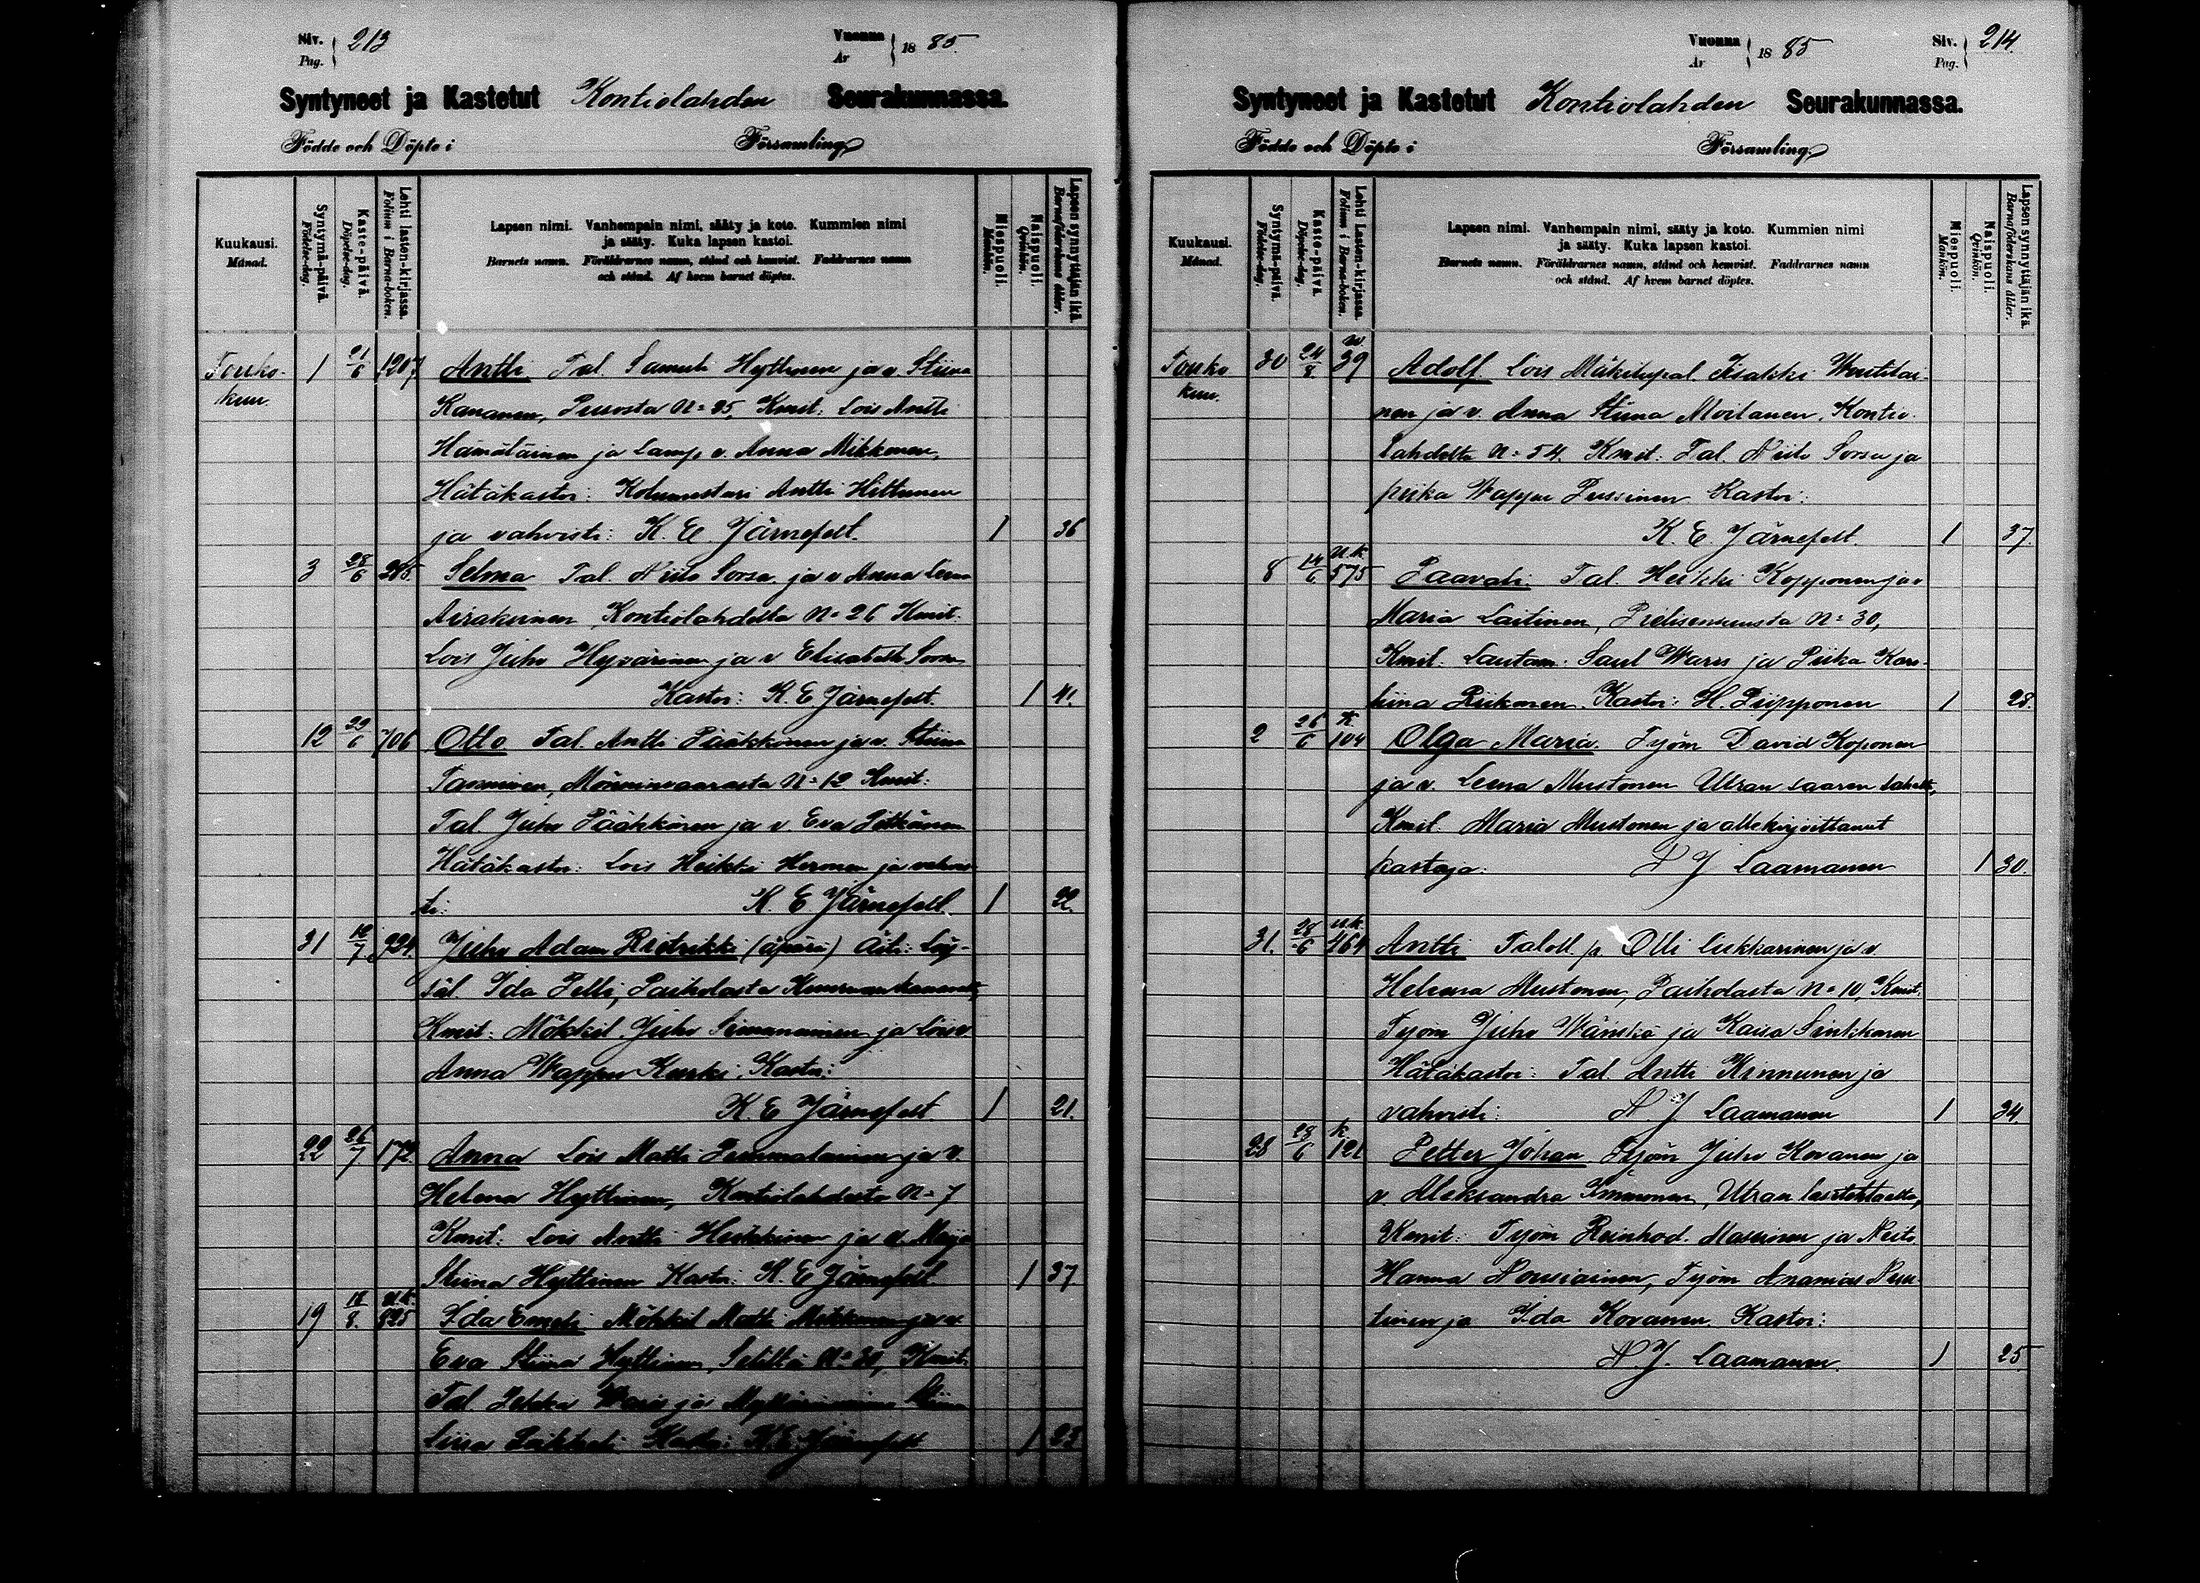 Siv. 213
Pag.
Vuonna 1885.
År
Syntyneet ja Kastetut Kontiolahden Seurakunnassa.
Födde och Döpte i Församling
Kuukausi.
Månad.
Syntymä-päivä.
Födelse-dag.
Kaste-päivä.
Döpelse-dag.
Lehti lasten-kirjassa.
Folium i Barna-boken.
Lapsen nimi. Vanhempain nimi, sääty ja koto. Kummien nimi
ja sääty. Kuka lapsen kastoi.
Barnets namn. Föräldrarnes namn, stånd och hemvist. Faddrarnes namn
och stånd. Af hvem barnet döptes.
Miespuoli.
Mankön.
Naispuoli.
Qvinkön.
Lapsen synnyttäjän ikä.
Barnaföderskans ålder.
Touko- 1 21/6 1207 Antti Tal. Samuli Hyttinen ja v. Stiina
kuu. Kananen, Pusosta N=25, Kmit: Lois Antti
Hämäläinen ja Lamp. v. Anna Mikkonen,
Hätäkastoi: Antti Hiltunen
ja vahvisti: K. E. Järnefelt. 1 36
3 28/6 Selma Tal. Niilo Sorsa ja v Anna Leena
Airaksinen, Kontiolahdelta N=26 Kmit.
Lois Juho Hyvärinen ja v Elisabeth Sorsa
Kastoi: K. E Järnefelt. 1 41.
12 29/6 706 Otto Tal. Antti Pääkkönen ja v. Stiina
N=12 Kmit:
Tal Juho Pääkkönen ja v. Eva Pitkänen
Hätäkastoi: Lois Heikki ja vahvis-
ti: K. E Järnefelt. 1 22.
31 12/7 924. Juho Adam Rietrikki (äpärä) Äiti: Loy-
säl Ida Pelli, Paiholasta
Kmit: Mökkil. Juho ja Lois v.
Anna Wappu Kurki, Kastoi:
K. E Järnefelt. 1 21.
22 26/7 172. Anna Lois Matti ja v.
Helena Hyttinen, Kontiolahdesta N=7
Kmit: Lois Antti Heikkinen ja v. Maija
Stiina Hyttinen Kastoi: K. E Järnefelt 1 37
19 8. Ida Emeli Mökkil Matti Mikkonen ja v.
Eva Stiina Hyttinen, N=30, Kmit:
Tal Pekka Waris ja Stiina
Liisa Kastoi: K. E. Järnefelt 1
Vuonna 1885
År
Siv. 214.
Pag.
Syntyneet ja Kastetut Kontiolahden Seurakunnassa.
Födde och Döpte i Församling.
Kuukausi.
Månad.
Syntymä-päivä.
Födelse-dag.
Kaste-päivä.
Döpelse-dag.
Lehti Lasten-kirjassa.
Folium i Barna-boken.
Lapsen nimi. Vanhempain nimi, sääty ja koto. Kummien nimi
ja sääty. Kuka lapsen kastoi.
Barnets namn. Föräldrarnes namn, stånd och hemvist. Faddrarnes namn
och stånd. Af hvem barnet döptes.
Miespuoli.
Mankön.
Naispuoli.
Qvinkön.
Lapsen synnyttäjän ikä.
Barnaföderskans ålder.
Touko 30 24/8 39 Adolf Lois Mäkitupal. Isakki
kuu. nen ja v. Anna Stiina Moilanen, Kontio-
lahdelta N=54. Kmit: Tal. Niilo Sorsa ja
piika Wappu Pussinen Kastoi:
K. E. Järnefelt. 1 37.
8 14/6 u.k. 575 Paavali. Tal. Heikki Kopponen ja v
Maria Laitinen, N=30,
Kmit. Lautam. Saul Waris ja Piika Karo-
liina Riikonen. Kastoi: H. Piipponen 1 28.
2 26/6 k. 104 Olga Maria. Työm David Koponen
ja v. Leena Mustonen Utran saaren sahalta,
Kmit. Maria Mustonen ja allekirjoittanut
kastaja: Laamanen 1 30.
31. 28/6 u.k. 464 Antti Olli Liukkarinen ja v.
Helena Mustonen, Paiholasta N=10, Kmit.
Työm Juho Wänskä ja Kaisa Sinkkonen
Hätäkastoi: Tal. Antti Kinnunen ja
vahvisti: N. J Laamanen 1 34.
28 28/6 k 121 Petter Johan Työm Juho Kovanen ja
v. Aleksandra Immonen, Utran
Kmit: Työm Reinhod. Massinen ja Neito
Hanna Nousiainen, Työm Ananias
tinen ja Ida Kovanen Kastoi:
N. J. Laamanen. 1 25